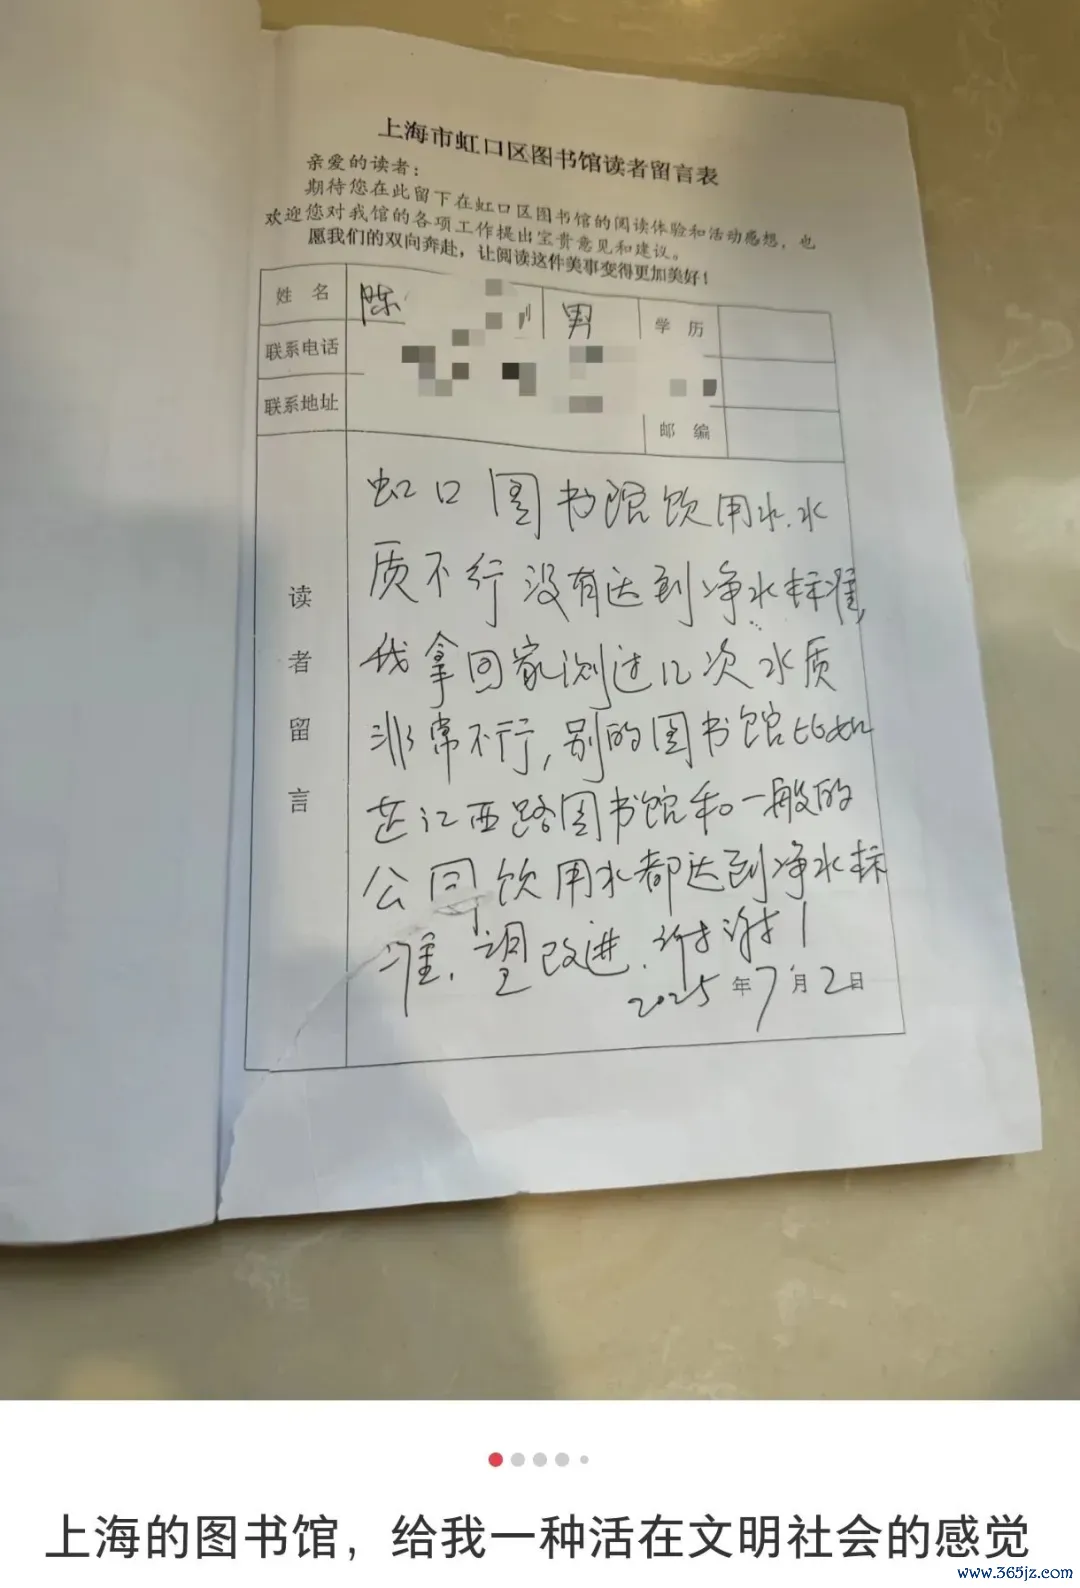 上海市虹口区图书馆读者留言表
亲爱的读者：
期待您在此留下在虹口区图书馆的阅读体验和活动感想，也
欢迎您对我馆的各项工作提出宝贵意见和建议。
愿我们的双向奔赴，让阅读这件美事变得更加美好！
姓 名 陈 别 男 学 历
联系电话
联系地址 邮 编
读者留言
虹口图书馆饮用水.水
质不行没有达到净水标准,
我拿回家测过几次水质
非常不行,别的图书馆比如
芷江西路图书馆和一般的
公园饮用水都达到净水标
准.望改进.谢谢!
2025年7月2日
上海的图书馆，给我一种活在文明社会的感觉
www.365jz.com